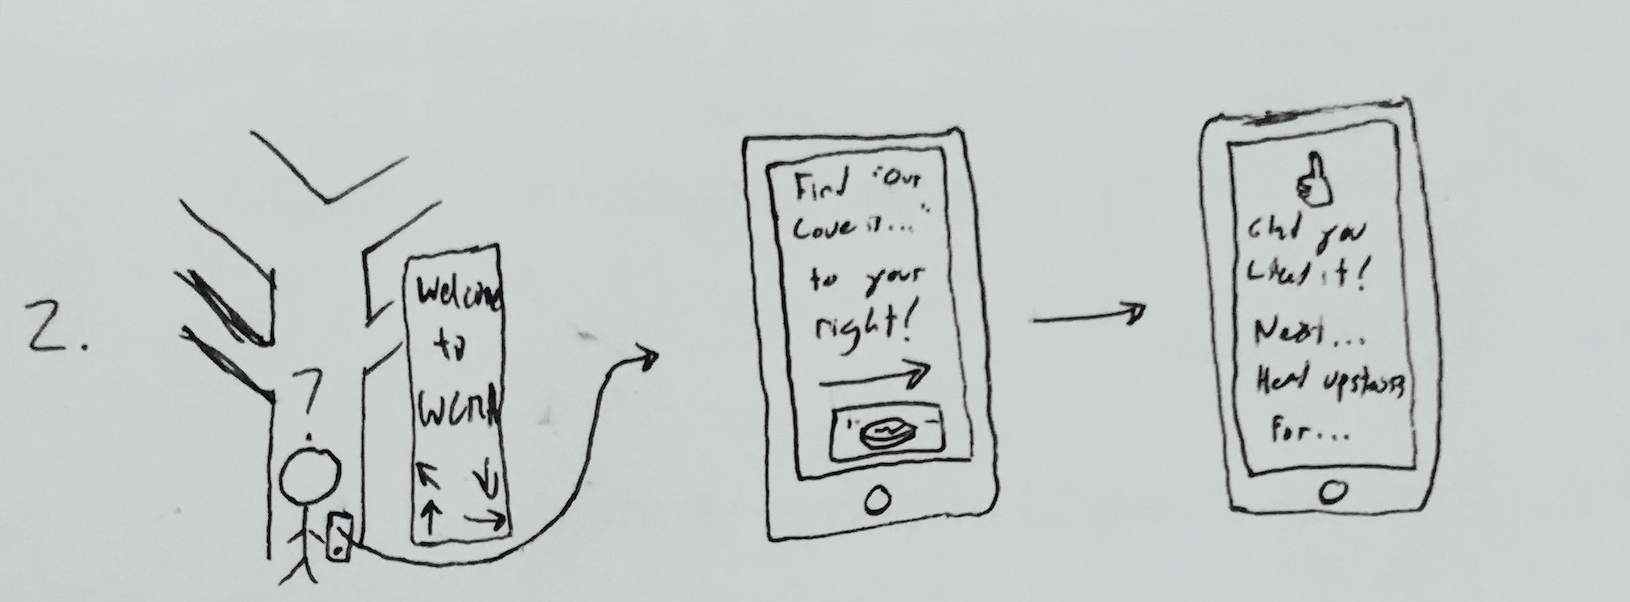 2.
?
Welcome
to
WCMA
Find "Our
Love is..."
to your
right!
Glad you
liked it!
Next...
Head upstairs
for...